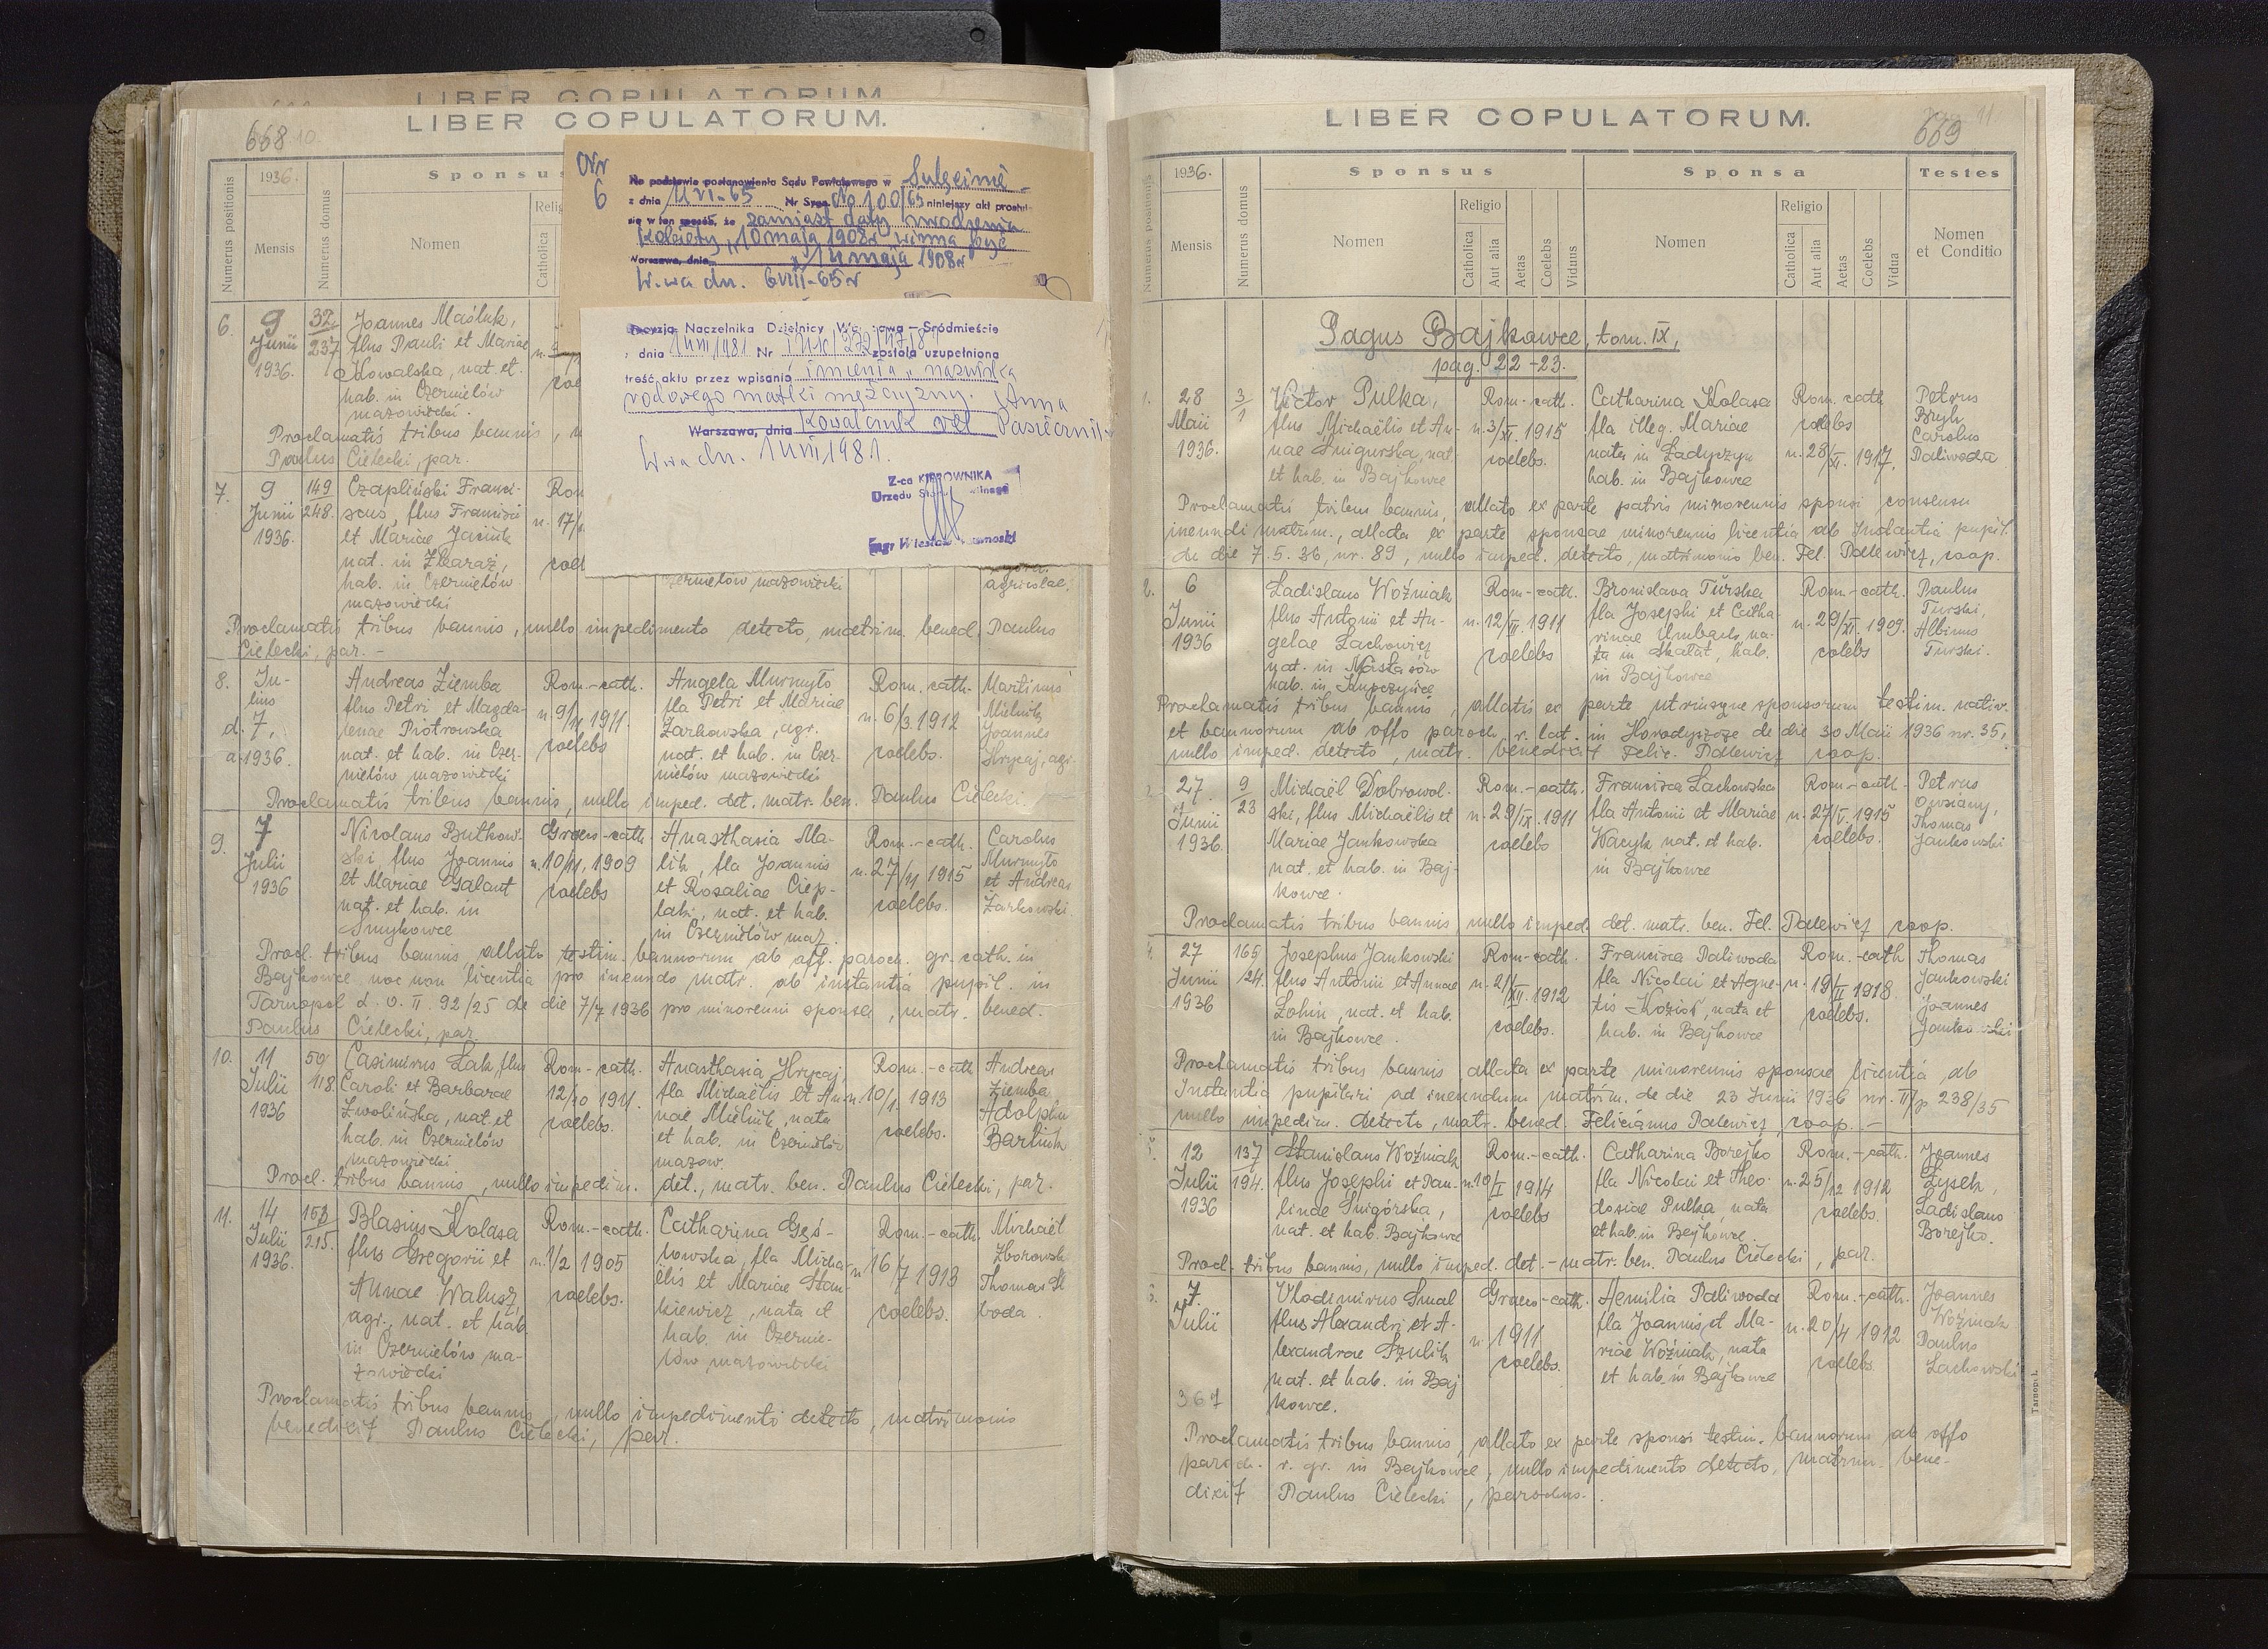 LIBER COPULATORUM.
LIBER COPULATORUM.
668 10
Numerus positionis
1936.
Mensis
Numerus domus
Sponsus
Nomen
Religio
Catholica
Nr
6
Na podstawie postanowienia Sądu Powiatowego w Sulęcinie
z dnia 11 VI-65 Nr Syg. No 100/65 niniejszy akt prostuje
się w ten sposób, że zamiast daty urodzenia
kobiety "10 maja 1908r winna być
Warszawa, dnia "14 maja 1908r
W-wa dn. 6 VIII-65r
Decyzją Naczelnika Dzielnicy Warszawa-Śródmieście
z dnia Nr została uzupełniona
treść aktu przez wpisanie imienia i nazwiska
rodowego matki mężczyzny. Anna
Warszawa, dnia Kowalczuk vel Pasiecznik
W-wa dn. 1981.
Z-ca KIEROWNIKA
Urzędu Stanu Cywilnego
mgr Wiesław
6.
9
Junii
1936.
32
237
Joannes Maśluk,
flus Pauli et Mariae
Kowalska, nat. et
hab. in Czernielów
mazowiecki.
Proclamatis tribus bannis,
Paulus Cielecki, par.
7.
9
Junii
1936.
149
248.
Czapliński Franci-
scus, flus Francisci
et Mariae Jasińk
nat. in Zbaraż,
hab. in Czernielów
mazowiecki
n. 17/
Czernielów mazowiecki
agricolae.
Proclamatis tribus bannis, nullo impedimento detecto, matrim. bened. Paulus
Cielecki, par. -
8.
Ju-
lius
d. 7,
a. 1936.
Andreas Ziemba
flus Petri et Magda-
lenae Piotrowska
nat. et hab. in Czer-
nielów mazowiecki
Rom.-cath.
n. 9/11 1911.
coelebs
Angela Murmyto
fla Petri et Mariae
Żarkowska, agr.
nat. et hab. in Czer-
nielów mazowiecki
Rom. cath.
n. 6/3. 1912
coelebs.
Martinus
Mielnik
Joannes
Hrycaj, agr.
Proclamatis tribus bannis, nullo imped. det. matr. ben. Paulus Cielecki.
9.
7
Julii
1936
Nicolaus Butkow-
ski, flus Joannis
et Mariae Galant
nat. et hab. in
Smykowce
Graeco-cath.
n. 10/11, 1909
coelebs
Anasthasia Ma-
lik, fla Joannis
et Rosaliae Ciep-
lak, nat. et hab.
in Czernielów maz.
Rom.-cath.
n. 27/11 1915
coelebs.
Carolus
Murmyto
et Andreas
Żarkowski.
Procl. tribus bannis, allato testim. bannorum ab off. paroch. gr. cath. in
Bajkowce nec non licentia pro ineundo matr. ab instantia pupil. in
Tarnopol d. O. II. 92/25 de die 7/7 1936 pro minorenni sponsa, matr. bened.
Paulus Cielecki, par.
10.
11
Julii
1936
59
118.
Casimirus Łak, flus
Caroli et Barbarae
Zwolińska, nat. et
hab. in Czernielów
mazowiecki
Rom.-cath.
12/10 1911.
coelebs.
Anasthasia Hrycaj,
fla Michaëlis et An-
nae Mielnik, nata
et hab. in Czernielów
mazow.
Rom.-cath
n. 10/1. 1913
coelebs.
Andreas
Ziemba
Adolphus
Barlink
Procl. tribus bannis, nullo impedim. det., matr. ben. Paulus Cielecki, par.
11.
14
Julii
1936.
158
215.
Blasius Kolasa
flus Gregorii et
Annae Walusz,
agr., nat. et hab.
in Czernielów ma-
zowiecki
Rom.-cath.
n. 1/2 1905
coelebs.
Catharina Gęś-
nowska, fla Micha-
ëlis et Mariae Stan-
kiewicz, nata et
hab. in Czernie-
lów mazowiecki
Rom.-cath.
n. 16/7 1913
coelebs.
Michaël
Zborowski
Thomas
Proclamatis tribus bannis, nullo impedimento detecto, matrimonio
benedixit Paulus Cielecki, par.
LIBER COPULATORUM.
669 11
Numerus positionis
1936.
Mensis
Numerus domus
Sponsus
Nomen
Religio
Catholica
Aut alia
Aetas
Coelebs
Viduus
Sponsa
Nomen
Religio
Catholica
Aut alia
Aetas
Coelebs
Vidua
Testes
Nomen
et Conditio
Pagus Bajkowce, tom. IX,
pag. 22-23.
1.
28
Maii
1936.
3
1
Victor Pulka,
flus Michaëlis et An-
nae Śnigurska, nat.
et hab. in Bajkowce
Rom.-cath.
n. 3/XI. 1915
coelebs.
Catharina Kolasa
fla illeg. Mariae
nata in Ładyczyn
hab. in Bajkowce
Rom. cath
coelebs
n. 28/XI. 1917.
Petrus
Bryk
Carolus
Paliwoda
Proclamatis tribus bannis, allato ex parte patris minorennis sponsi consensu
ineundi matrim., allata ex parte sponsae minorennis licentia ab Instantia pupil.
de die 7. 5. 36, nr. 89, nullo imped. detecto, matrimonio ben. Fel. Palewicz, coop.
2.
6
Junii
1936
Ladislaus Woźniak
flus Antonii et An-
gelae Lachowicz
nat. in Nastasów
hab. in Kupczyńce
Rom-cath.
n. 12/II. 1911
coelebs
Bronislava Turska
fla Josephi et Catha-
rinae Umbach, na-
ta in Skałat, hab.
in Bajkowce
Rom.-cath.
n. 29/XI. 1909.
colebs
Paulus
Turski,
Albinus
Turski.
Proclamatis tribus bannis, allatis ex parte utriusque sponsorum testim. nativ.
et bannorum ab offo paroch. r. lat. in Horodyszcze de die 30 Maii 1936 nr. 35,
nullo imped. detecto, matr. benedixit Felic. Palewicz coop.
3.
27
Junii
1936.
9
23
Michaël Dobrowol-
ski, flus Michaëlis et
Mariae Jankowska
nat. et hab. in Baj-
kowce.
Rom.-cath.
n. 29/IX. 1911
coelebs
Francisca Lachowska
fla Antonii et Mariae
Wacyk nat. et hab.
in Bajkowce
Rom.-cath.
n. 27/V. 1915
coelebs.
Petrus
Owsiany,
Thomas
Jankowski
Proclamatis tribus bannis, nullo imped. det. matr. ben. Fel. Palewicz coop.
4.
27
Junii
1936
165
24.
Josephus Jankowski
flus Antonii et Annae
Łobin, nat. et hab.
in Bajkowce.
Rom-cath.
n. 2/XII. 1912
coelebs.
Francisca Paliwoda
fla Nicolai et Agne-
tis Kozioł, nata et
hab. in Bajkowce
Rom.-cath
n. 19/II 1918.
coelebs.
Thomas
Jankowski
Joannes
Jankowski
Proclamatis tribus bannis allata ex parte minorennis sponsae licentia ab
Instantia pupilari ad ineundum matrim. de die 23 Junii 1936 nr. II/p 238/35
nullo impedim. detecto, matr. bened. Felicianus Palewicz, coop. -
5.
12
Julii
1936
137
194.
Stanislaus Woźniak
flus Josephi et Pau-
linae Śnigórska,
nat. et hab. Bajkowce
Rom.-cath.
n. 10/I 1914
coelebs
Catharina Borejko
fla Nicolai et Theo-
dosiae Pulka, nata
et hab. in Bajkowce.
Rom.-cath.
n. 25/12 1912
coelebs.
Joannes
Zysek,
Ladislaus
Borejko.
Procl. tribus bannis, nullo imped. det. - matr. ben. Paulus Cielecki, par.
6.
7.
Julii
Vladimirus Smal
flus Alexandri et A-
lexandrae Szulik
nat. et hab. in Baj
kowce.
Graeco-cath.
n. 1911
coelebs.
Aemilia Paliwoda
fla Joannis et Ma-
riae Woźniak, nata
et hab. in Bajkowce
Rom.-cath.
n. 20/4 1912
coelebs
Joannes
Woźniak
Paulus
Lachowski
367
Proclamatis tribus bannis, allato ex parte sponsi testim. bannorum ab offo
paroch. r. gr. in Bajkowce, nullo impedimento detecto, matrim. bene-
dixit Paulus Cielecki, parochus.